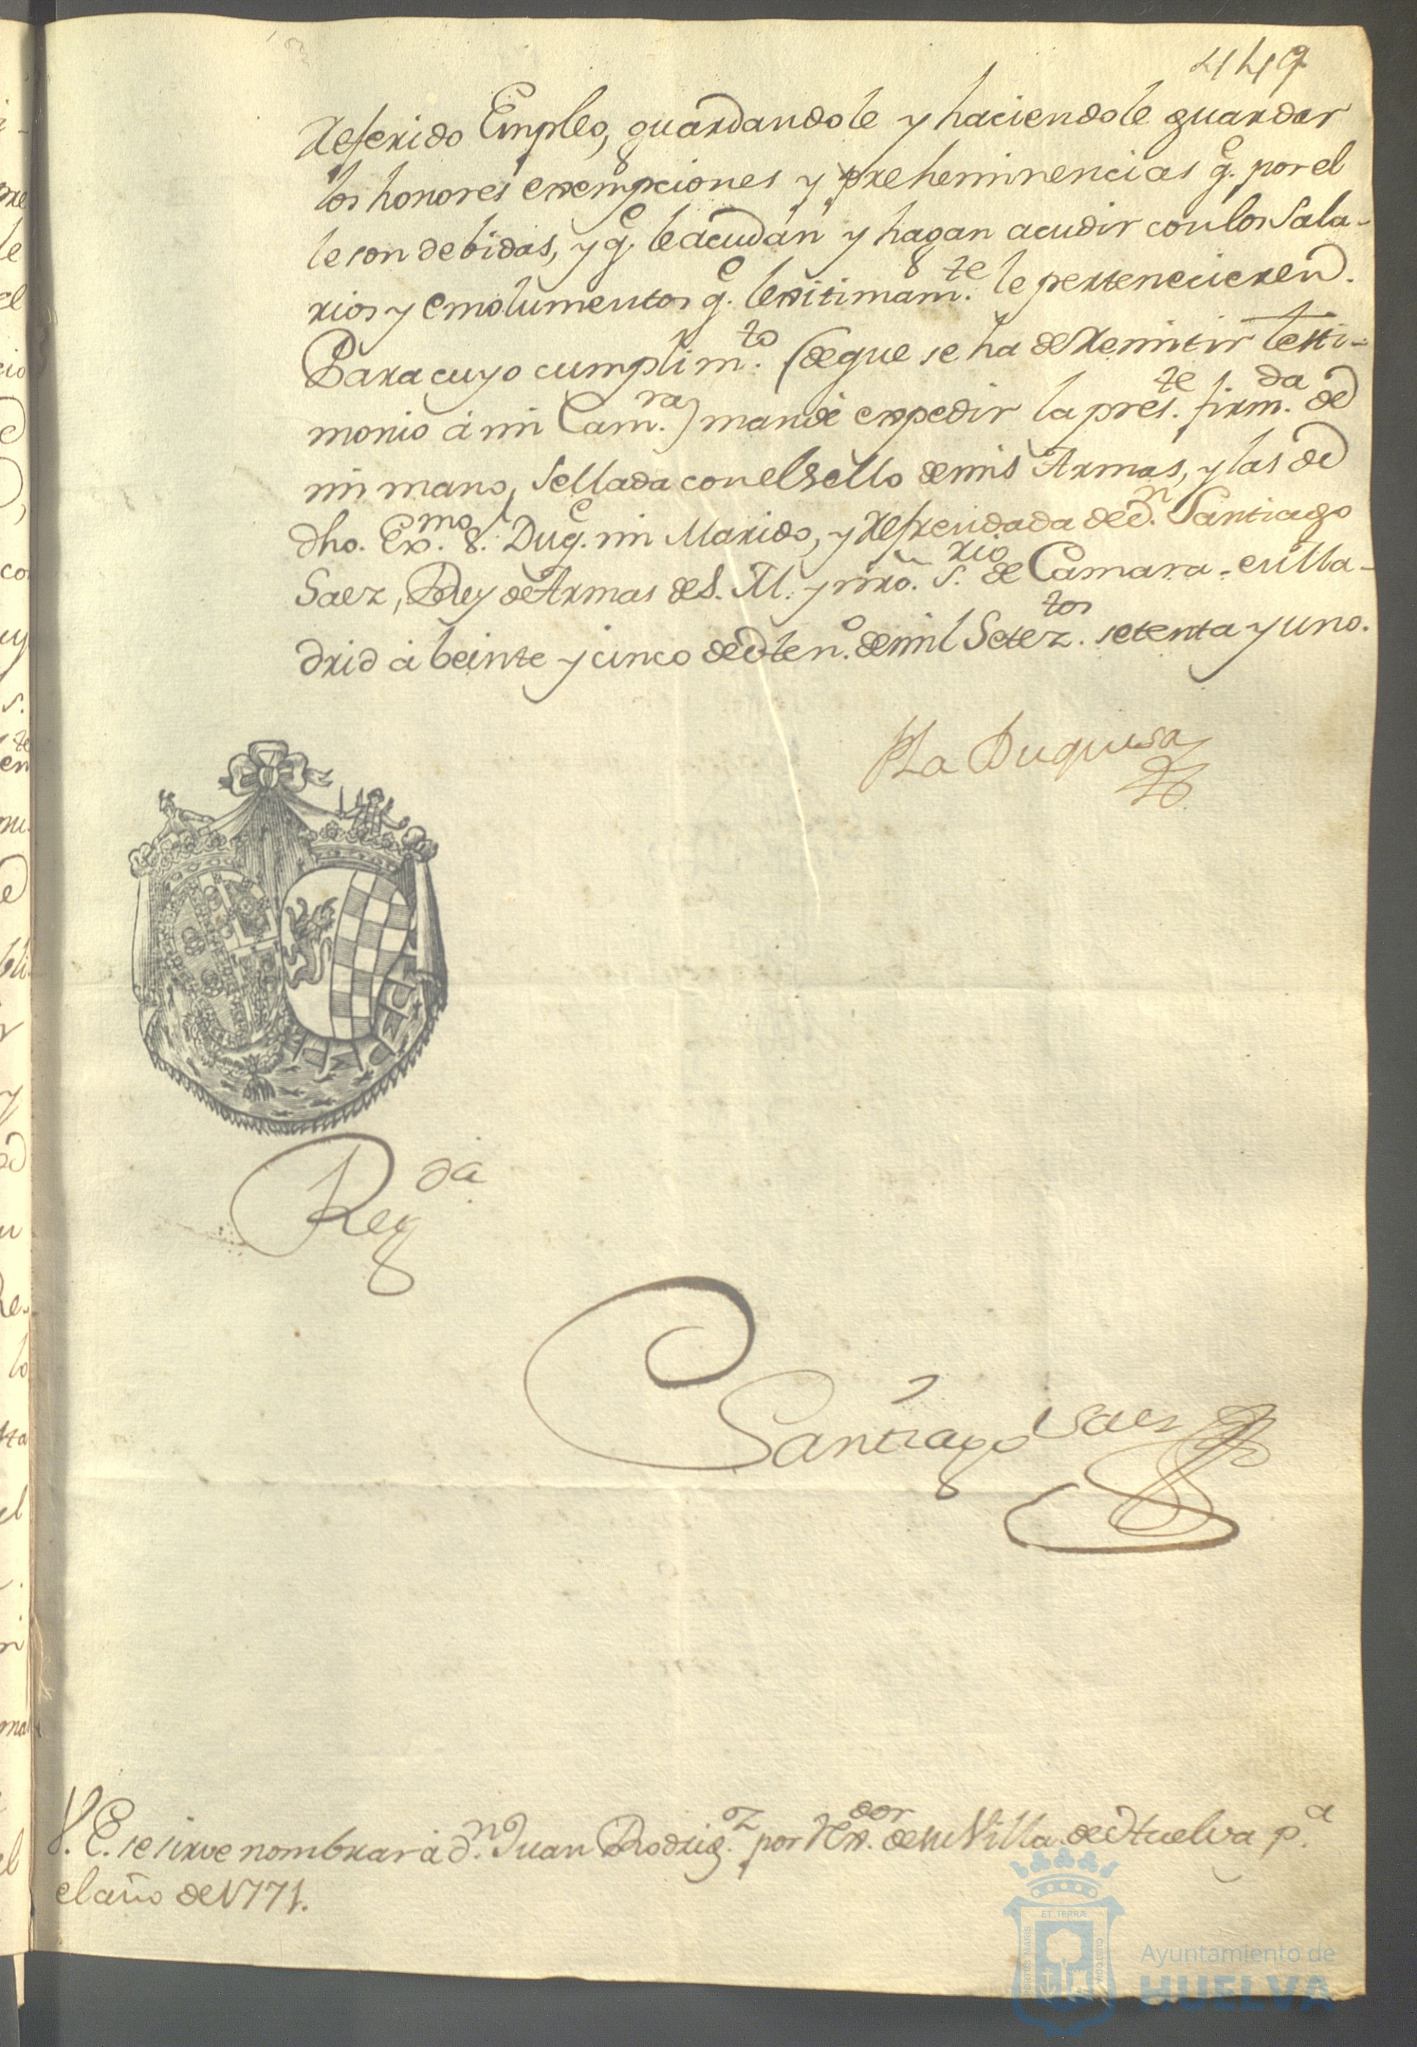 449
referido Empleo, guardandole y haciendole guardar
los honores exempciones y preheminencias q.e por el
le son debidas, y q.e le acudan y hagan acudir con los Sala-
rios y emolumentos q.e lexitimam.te le pertenecieren.
Para cuyo cumplim.to (de que se ha de Remitir testi-
monio á mi Cam.ra) mandé expedir la pres.te firm.da de
mi mano, Sellada con el Sello de mis Armas, y las de
dho. Ex.mo S. Duq.e mi Marido, y Refrendada de D.n Santiago
Saez, Rey de Armas de S. M. y nrõ. S.rio de Camara. en Ma-
drid á beinte y cinco de En.o de mil Setez.tos setenta y uno.
La Duquesa
Reg.da
Santiago Saez
V. E. se sirve nombrar á d.n Juan Rodrig.ez por Rx.dor de su Villa de Huelva p.a
el año de 1771.
Ayuntamiento de
HUELVA